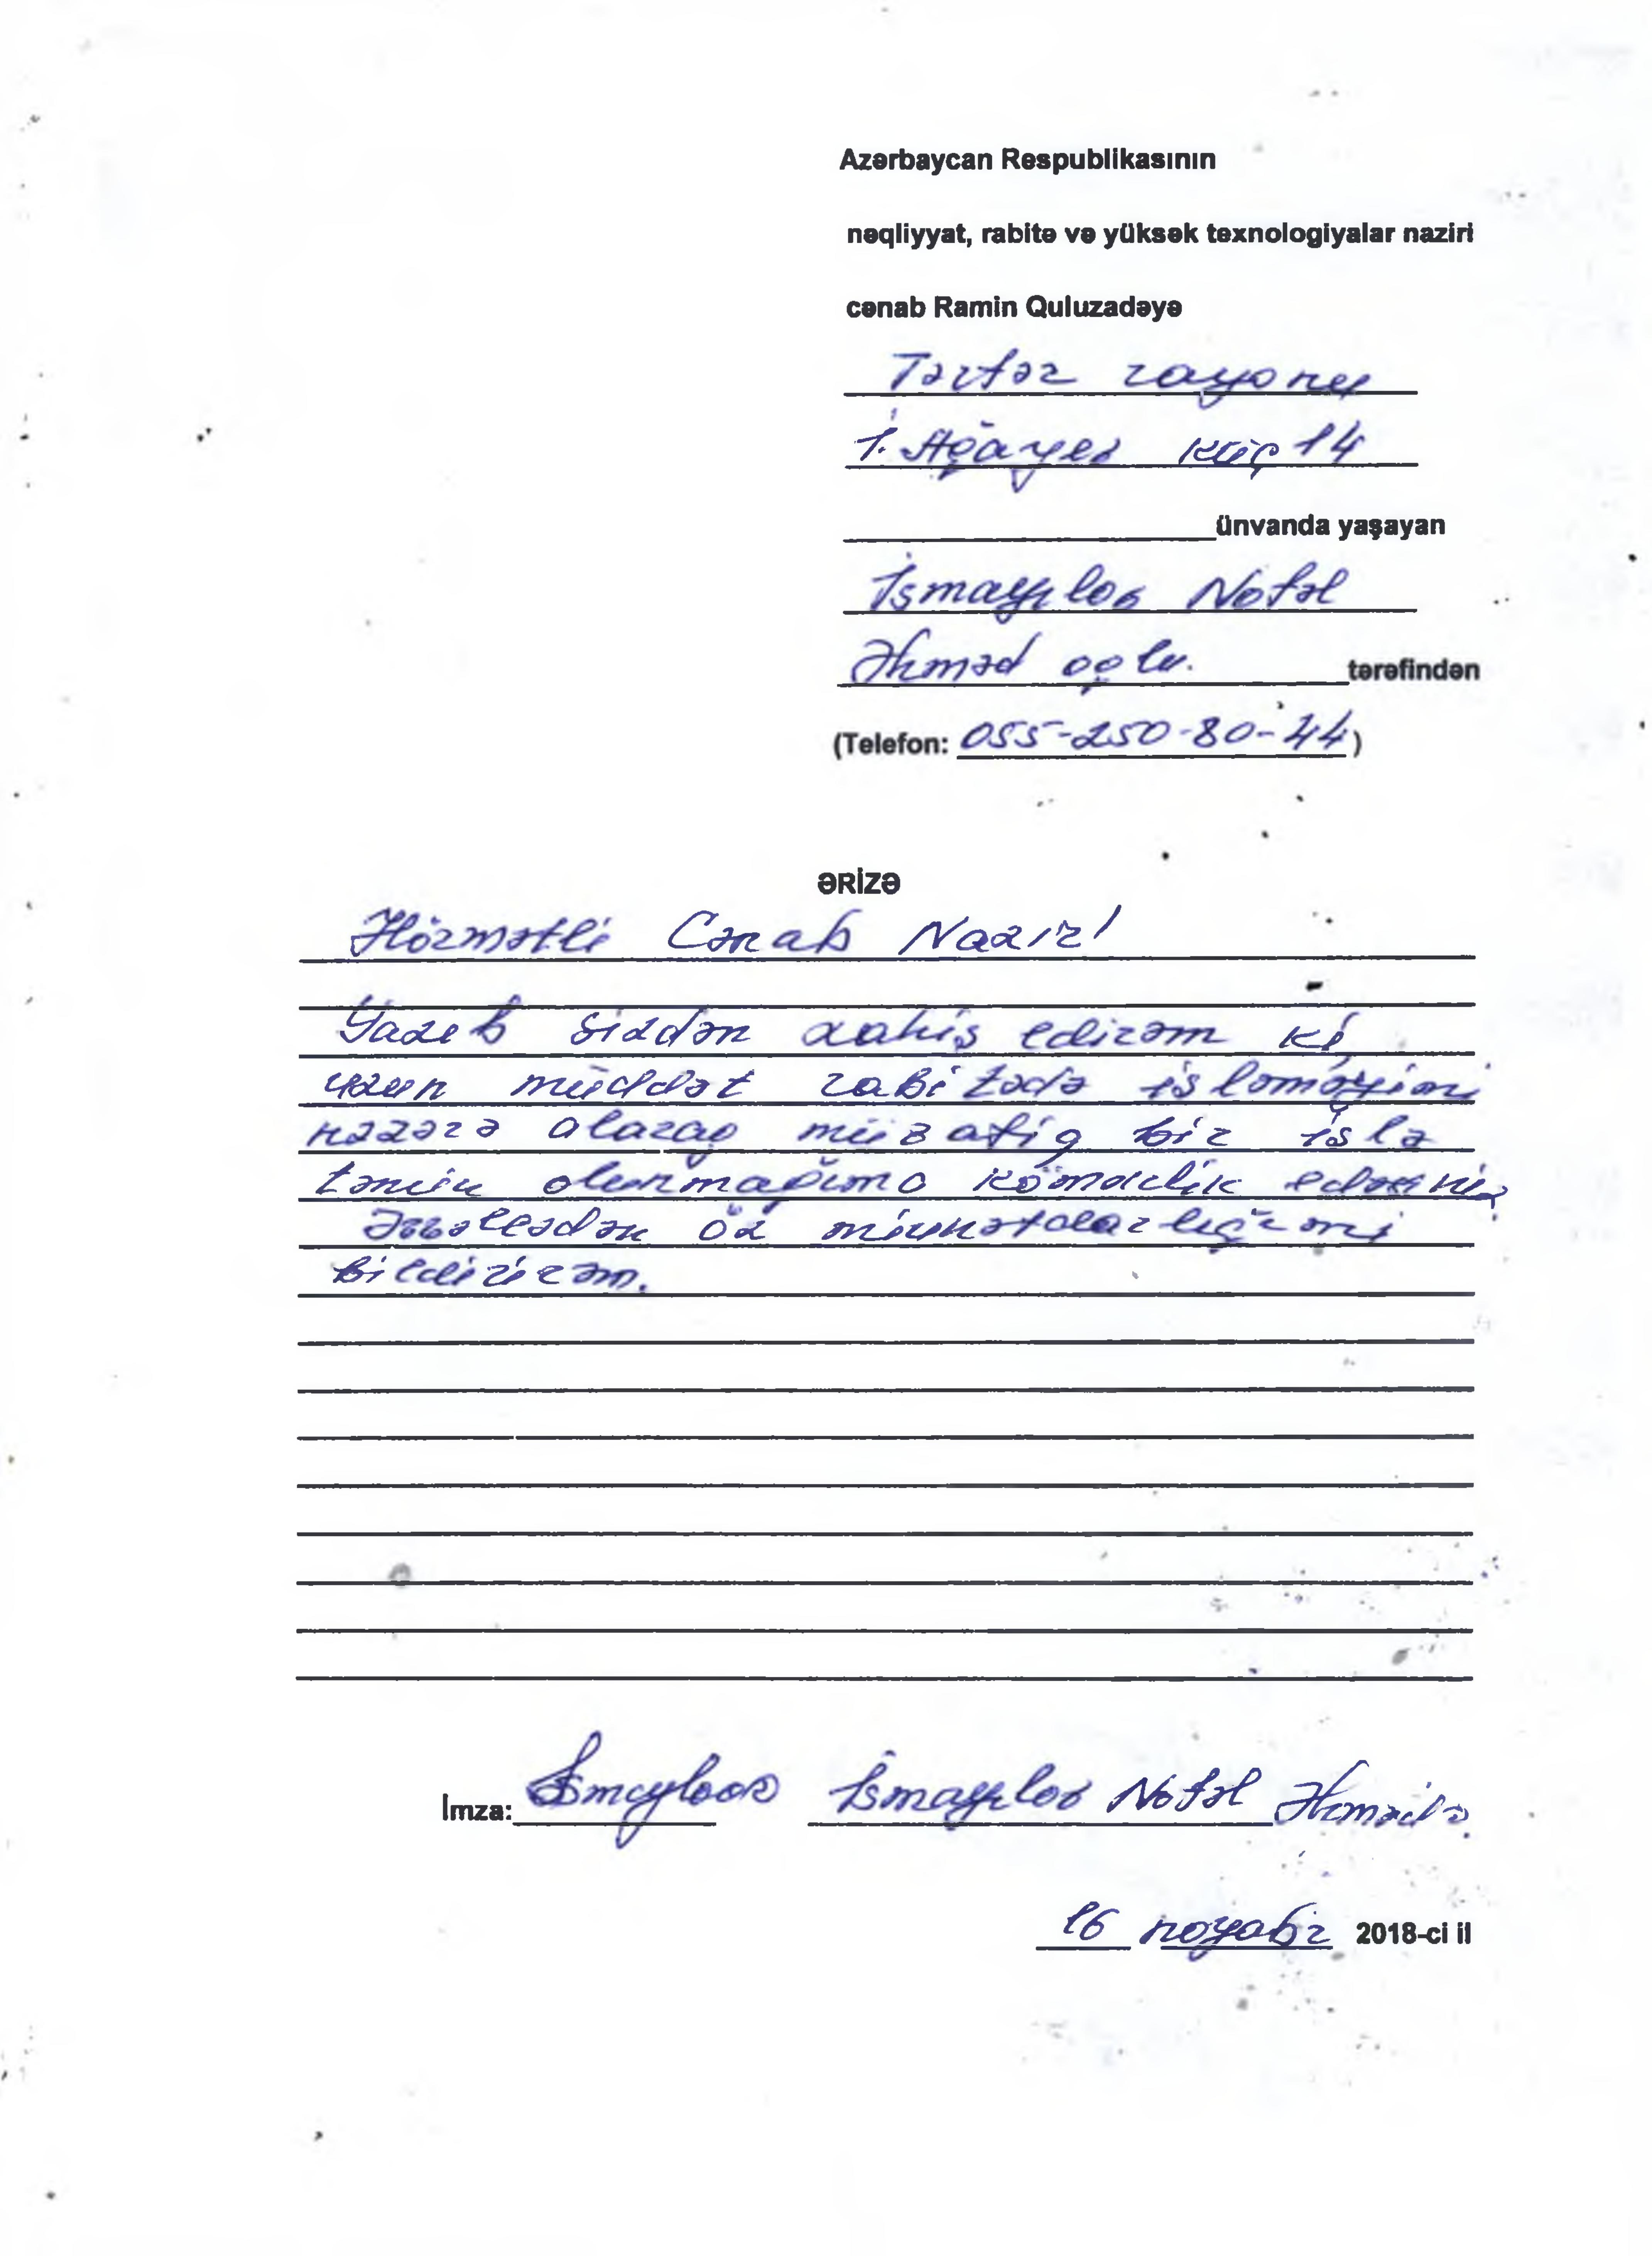 Azərbaycan Respublikasının
nəqliyyat, rabitə və yüksək texnologiyalar naziri
cənab Ramin Quluzadəyə
Tərtər rayonu
İ. Ağayev küç 14
ünvanda yaşayan
İsmayılov Nofəl
Əhməd oğlu. tərəfindən
(Telefon: 055-250-80-44)
ƏRİZƏ
Hörmətli Cənab Nazir!
Yazıb sizdən xahiş edirəm ki
uzun müddət rabitədə işləməyimi
nəzərə alaraq müvafiq bir işlə
təmin olunmağıma köməklik edəsiniz
Əvvəlcədən öz minnətdarlığımı
bildirirəm.
İmza: İsmayılov Nofəl Əhməd o.
16 noyabr 2018-ci il